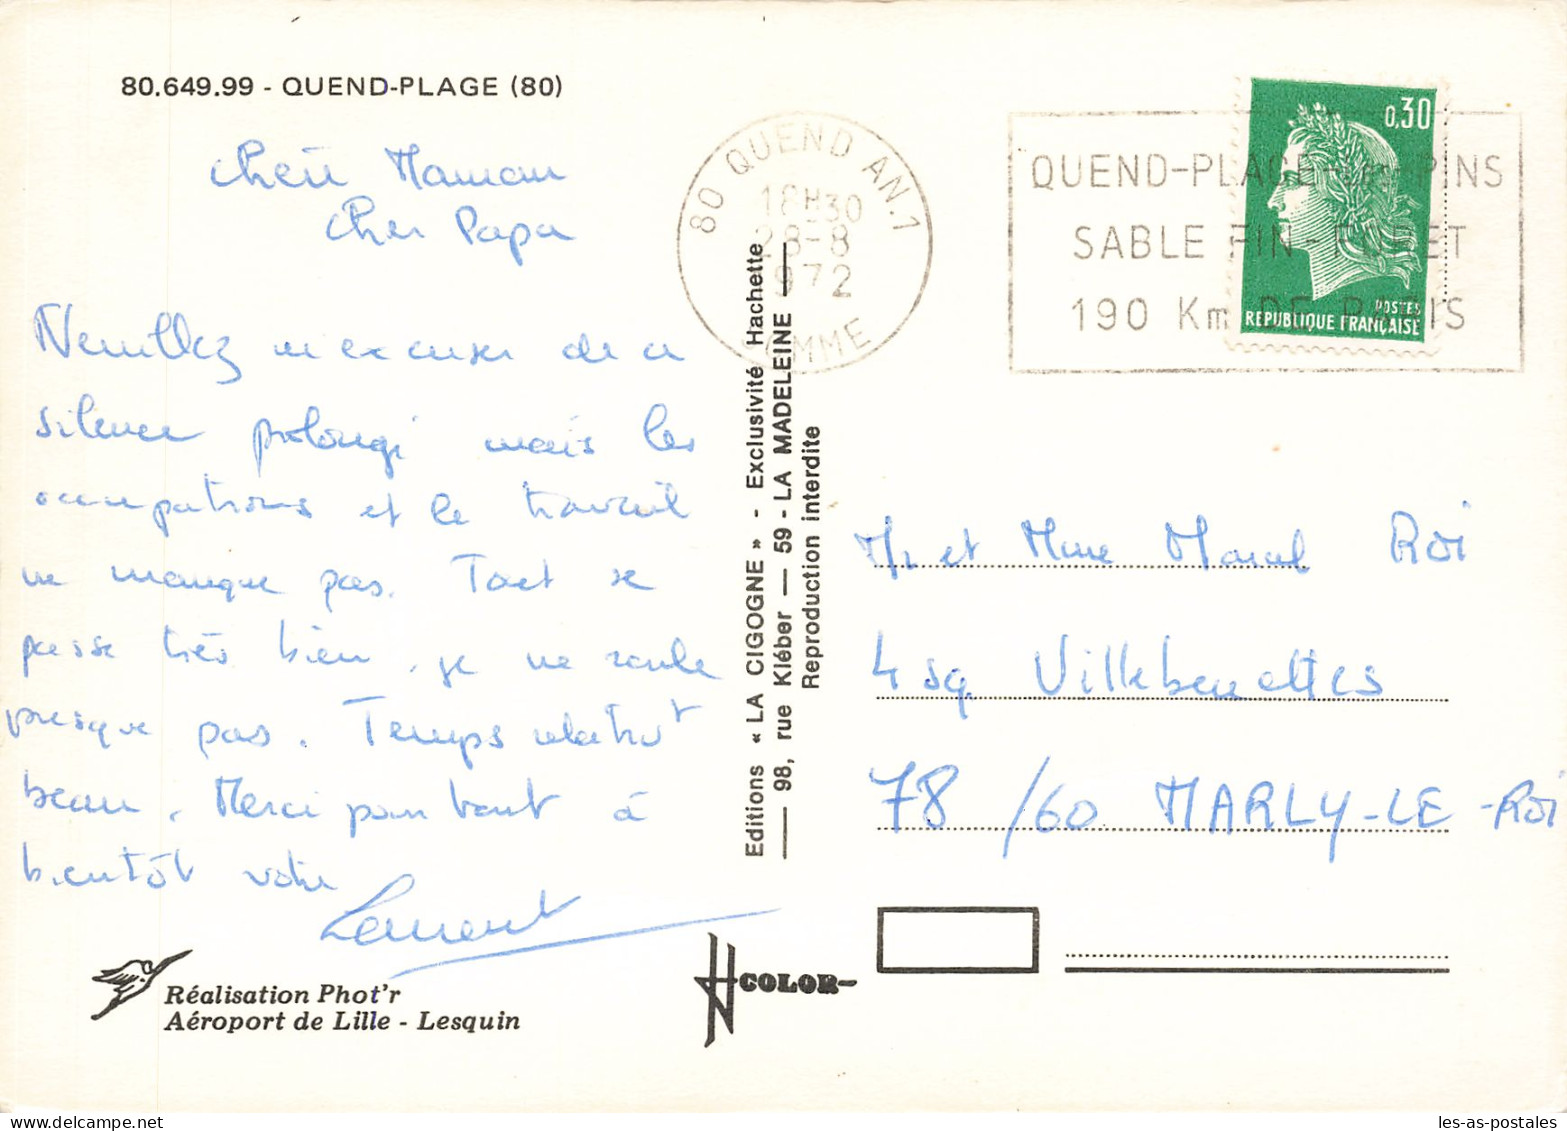 80.649.99 - QUEND-PLAGE (80)
Chère Maman
Cher Papa
Veuillez m'excuser de ce
silence prolongé mais les
occupations et le travail
ne manque pas. Tout se
passe très bien, je ne roule
presque pas. Temps relativt
beau. Merci pour tout à
bientôt votre
Laurent
Réalisation Phot'r
Aéroport de Lille - Lesquin
COLOR
Editions « LA CIGOGNE » - Exclusivité Hachette
98, rue Kléber — 59 - LA MADELEINE
Reproduction interdite
80 QUEND AN.1
18H30
28-8
1972
SOMME
QUEND-PLAGE PINS
SABLE FIN - FORET
190 Km DE PARIS
0,30
POSTES
REPUBLIQUE FRANÇAISE
Mr et Mme Marcel Roi
4 sq Villebenettes
78/60 MARLY-LE-Roi
les-as-postales